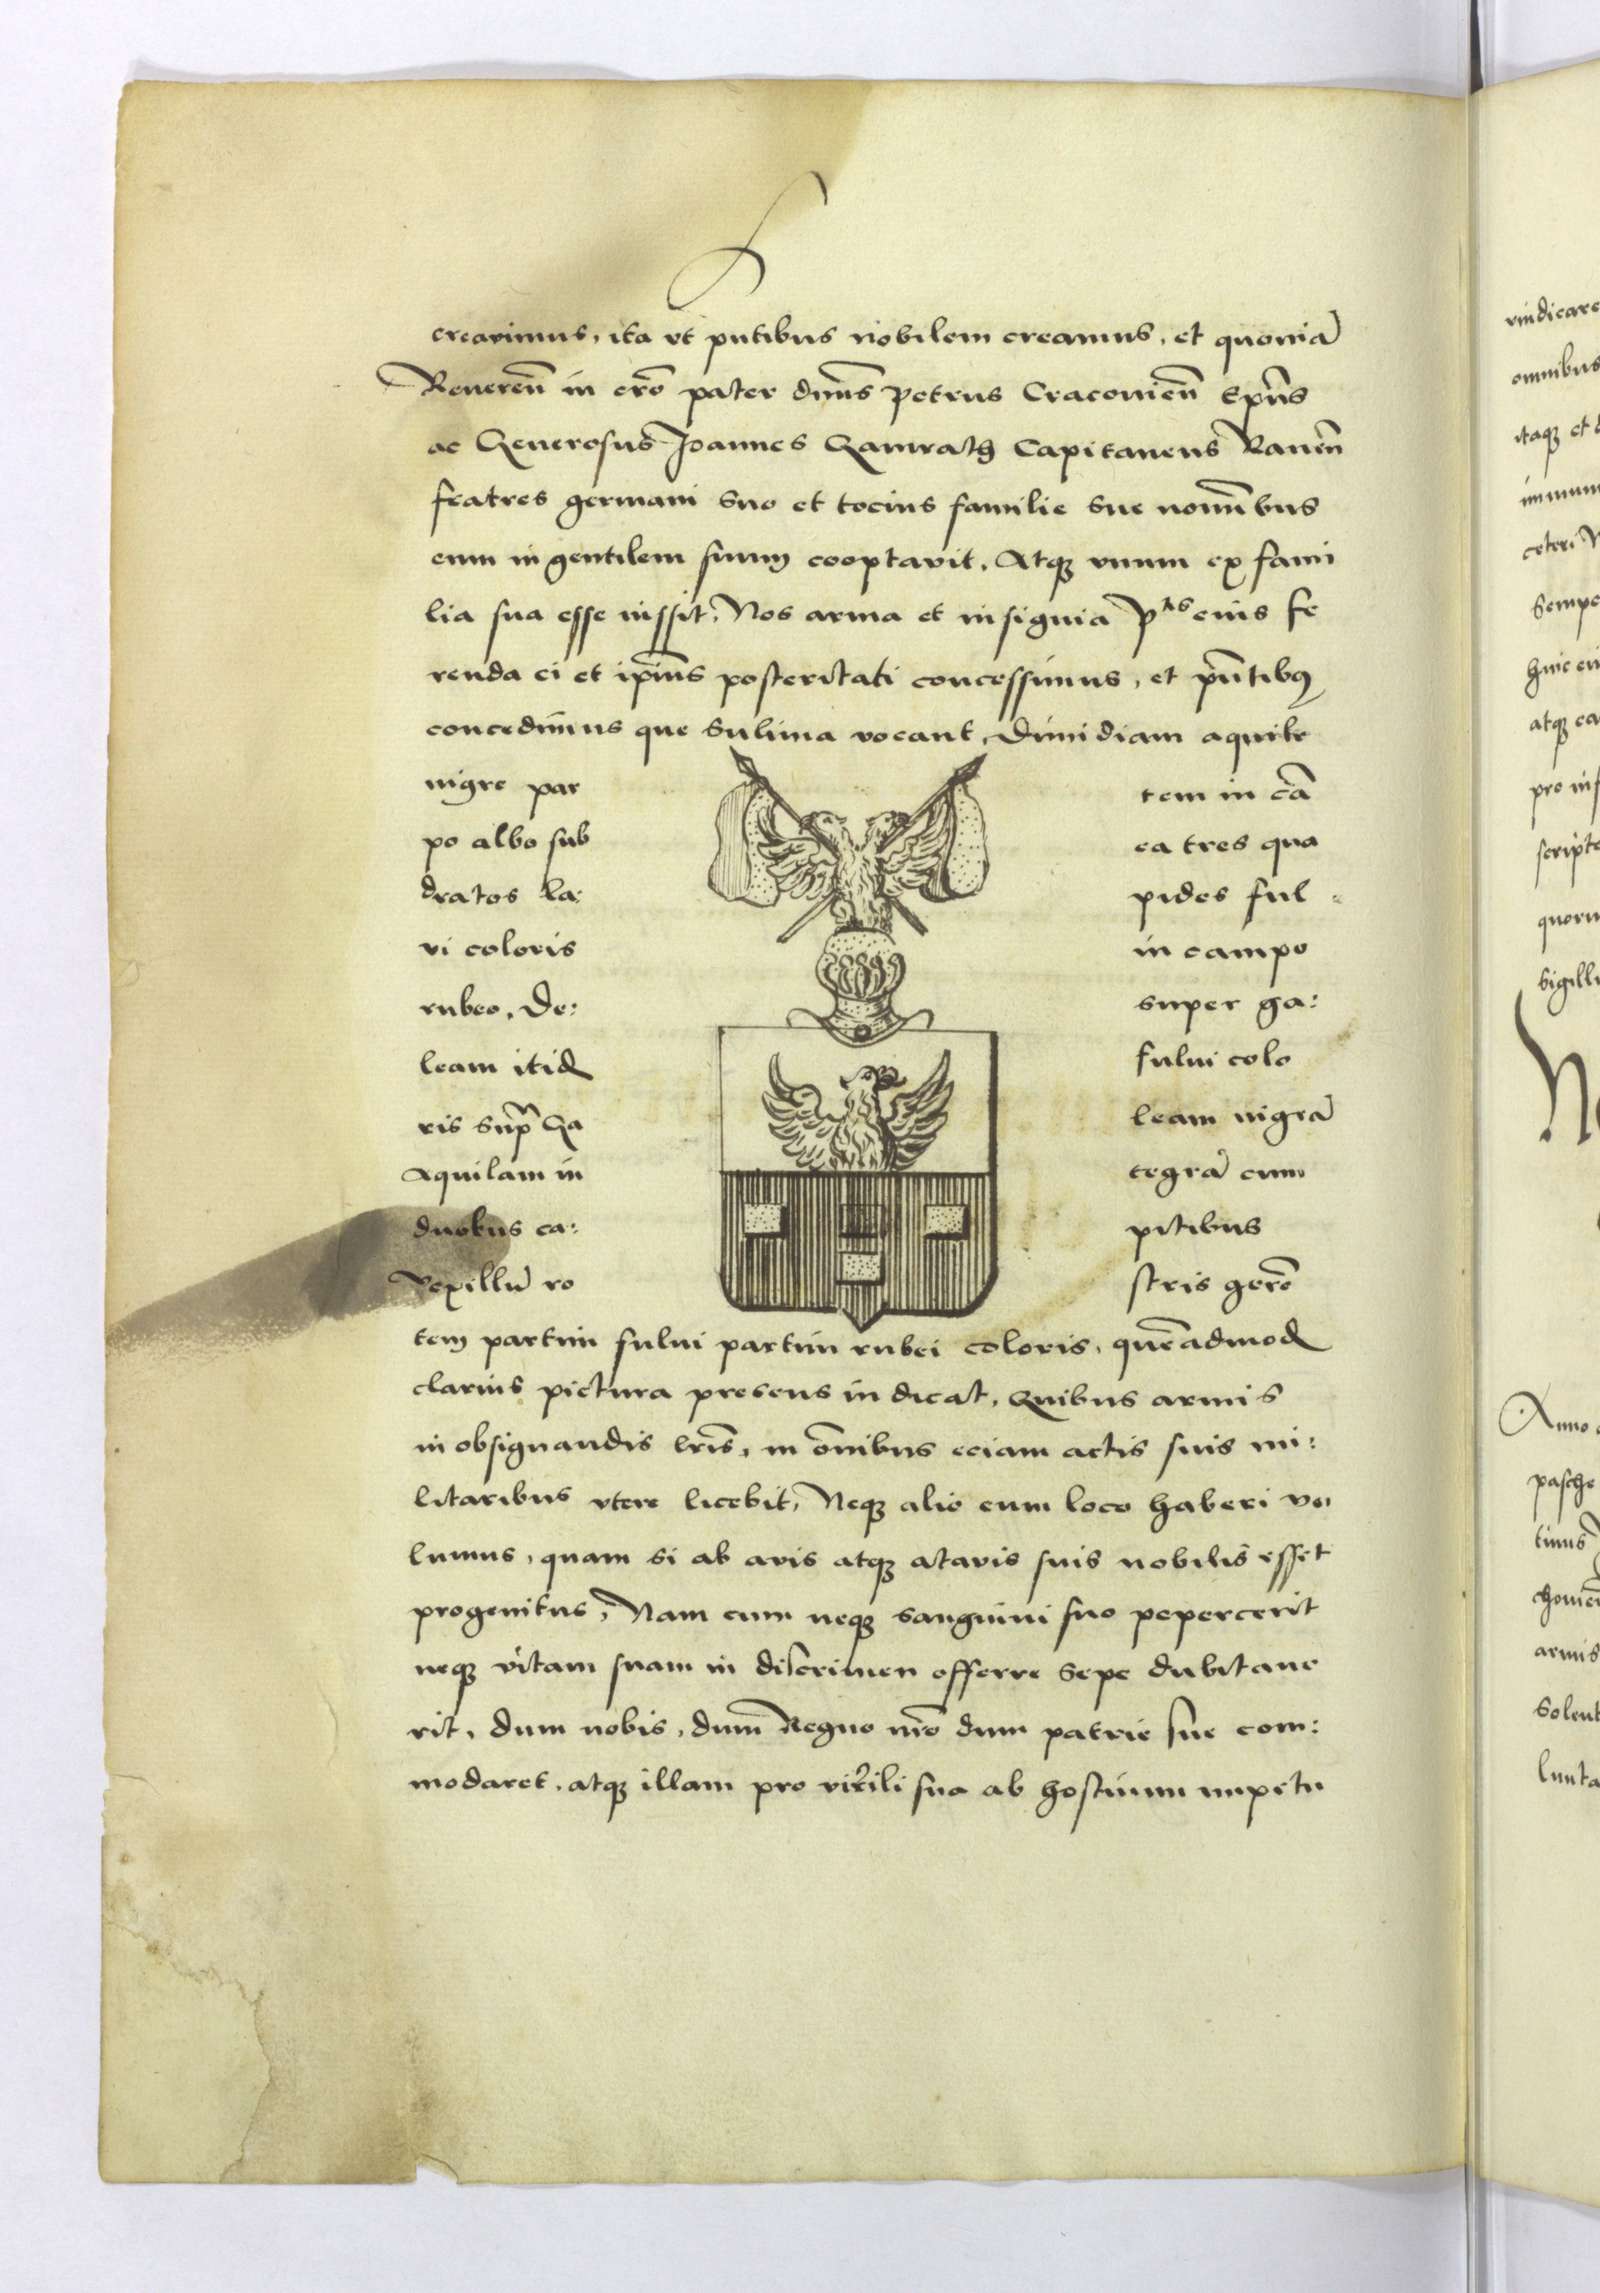 crearimus, ita vt pn̄tibus nobilem creamus, et quoniā
Reueren̄ in cr̄o pater dn̄us Petrus Cracouien̄ Ep̄us
ac Generosus Joannes Gamrath Capitaneus
fratres germani suo et tocius familie sue nomi̅bus
eum in gentilem suum cooptavit. Atq̨ vnum ex fami
lia sua esse iussit. Nos arma et insignia eius fe
renda ei et ip̄ius posteritati concessimus, et pn̄tibus
concedimus que Sulima vocant, Dimidiam aquile
nigre par tem in cā
po albo sub ea tres qua
dratos la: pides ful
vi coloris in campo
rubeo. De: super ga:
leam itid fului colo
ris sup̄ Ga leam nigrā
Aquilam in tegrā cum
duobus ca: pitibus
Vexillū ro stris gerē
tem partim fului partim rubei coloris, quēadmod
clarius pictura presens indicat. Quibus armis
in obsignandis lr̄is, in ōnibus eciam actis suis mi:
litaribus vtere licebit, Neq̨ alio eum loco haberi vo
lumus, quam si ab avis atq̨ atavis suis nobilis esset
progenitus, Nam cum neq̨ sanguini suo pepercerit
neq̨ vitam suam in discrimen offerre sepe dubitaue
rit, dum nobis, dum Regno nr̄o dum patrie sue com:
modaret, atq̨ illam pro virili sua ab hostium impetu
vindicare
omnibus
itaq̨ et
ceteri
Sempe
huic
atq̨
pro
script
quoru
Sigill
Anno
pasche
armis
Solent